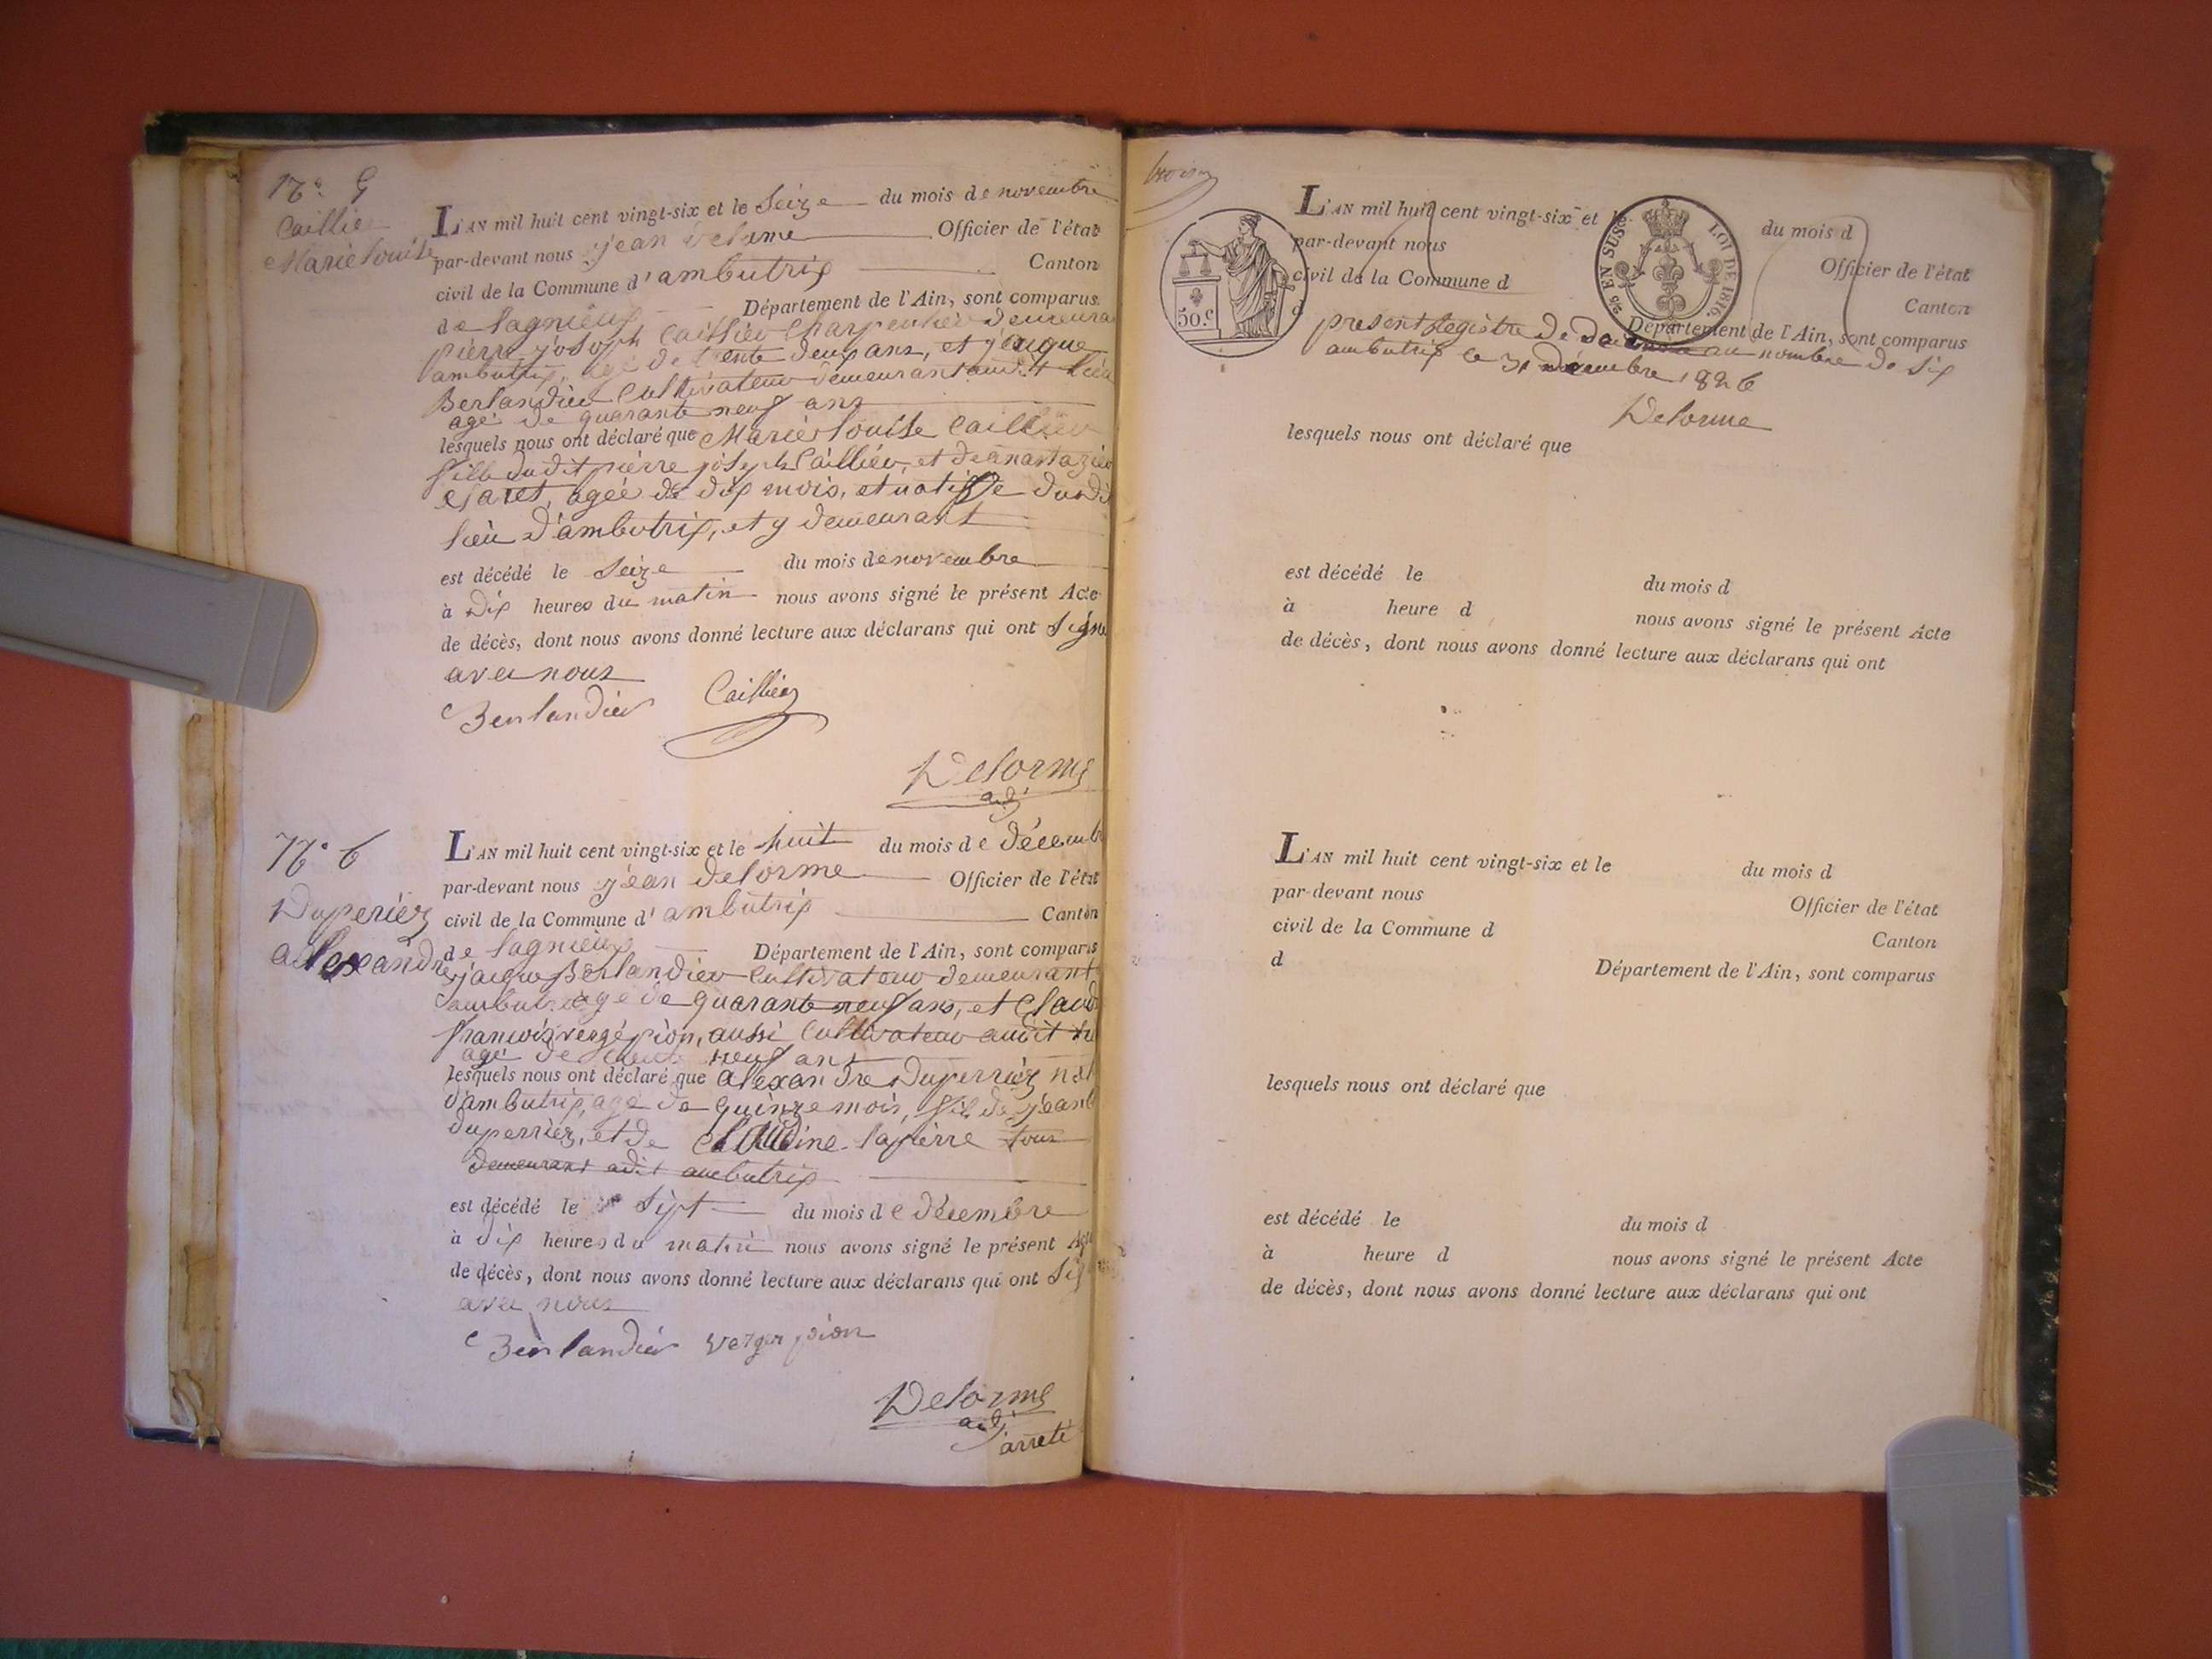 N° 5
Caillier
Marie Louise
L'AN mil huit cent vingt-six et le Seize du mois de novembre
par-devant nous jean delorme Officier de l'état
civil de la Commune d'ambutrix Canton
de lagnieux Département de l'Ain, sont comparus
pierre joseph Caillier Charpentier demeura
ambutrix, agé de trente deux ans, et jacque
Berlandier Cultivateur demeurant audit lieu
agé de quarante neuf ans
lesquels nous ont déclaré que Marie Louise Caillier
fille dudit pierre joseph Caillier, et de anastazie
agée de dix mois, et native dudi
lieu d'ambutrix, et y demeurant
est décédé le Seize du mois de novembre
à dix heures du matin nous avons signé le présent Acte
de décès, dont nous avons donné lecture aux déclarans qui ont signé
avec nous
Berlandier Caillier
Delorme
adj
N° 6
Duperier
alexandre
L'AN mil huit cent vingt-six et le huit du mois de décemb
par-devant nous jean delorme Officier de l'état
civil de la Commune d'ambutrix Canton
de lagnieux Département de l'Ain, sont comparus
jacque Berlandier Cultivateur demeurant
agé de quarante neuf ans, et Claud
françois vergé pion, aussi Cultivateur audit
agé de neuf ans
lesquels nous ont déclaré que alexandre duperrier nat
d'ambutrix, agé de quinze mois, fils de jean
duperrier, et de Claudine lapierre tous
demeurant adit ambutrix
est décédé le sept du mois de décembre
à dix heures du matin nous avons signé le présent Act
de décès, dont nous avons donné lecture aux déclarans qui ont sig
avec nous
Berlandier verger pion
Delorme
adj
arreté
50.c
EN SUS
LOI DE 1816.
L'AN mil huit cent vingt-six et le du mois d
par-devant nous Officier de l'état
civil de la Commune d Canton
d Département de l'Ain, sont comparus
present Registre de au nombre de six
ambutrix le 31 décembre 1826
Delorme
lesquels nous ont déclaré que
est décédé le du mois d
à heure d nous avons signé le présent Acte
de décès, dont nous avons donné lecture aux déclarans qui ont
L'AN mil huit cent vingt-six et le du mois d
par-devant nous Officier de l'état
civil de la Commune d Canton
d Département de l'Ain, sont comparus
lesquels nous ont déclaré que
est décédé le du mois d
à heure d nous avons signé le présent Acte
de décès, dont nous avons donné lecture aux déclarans qui ont